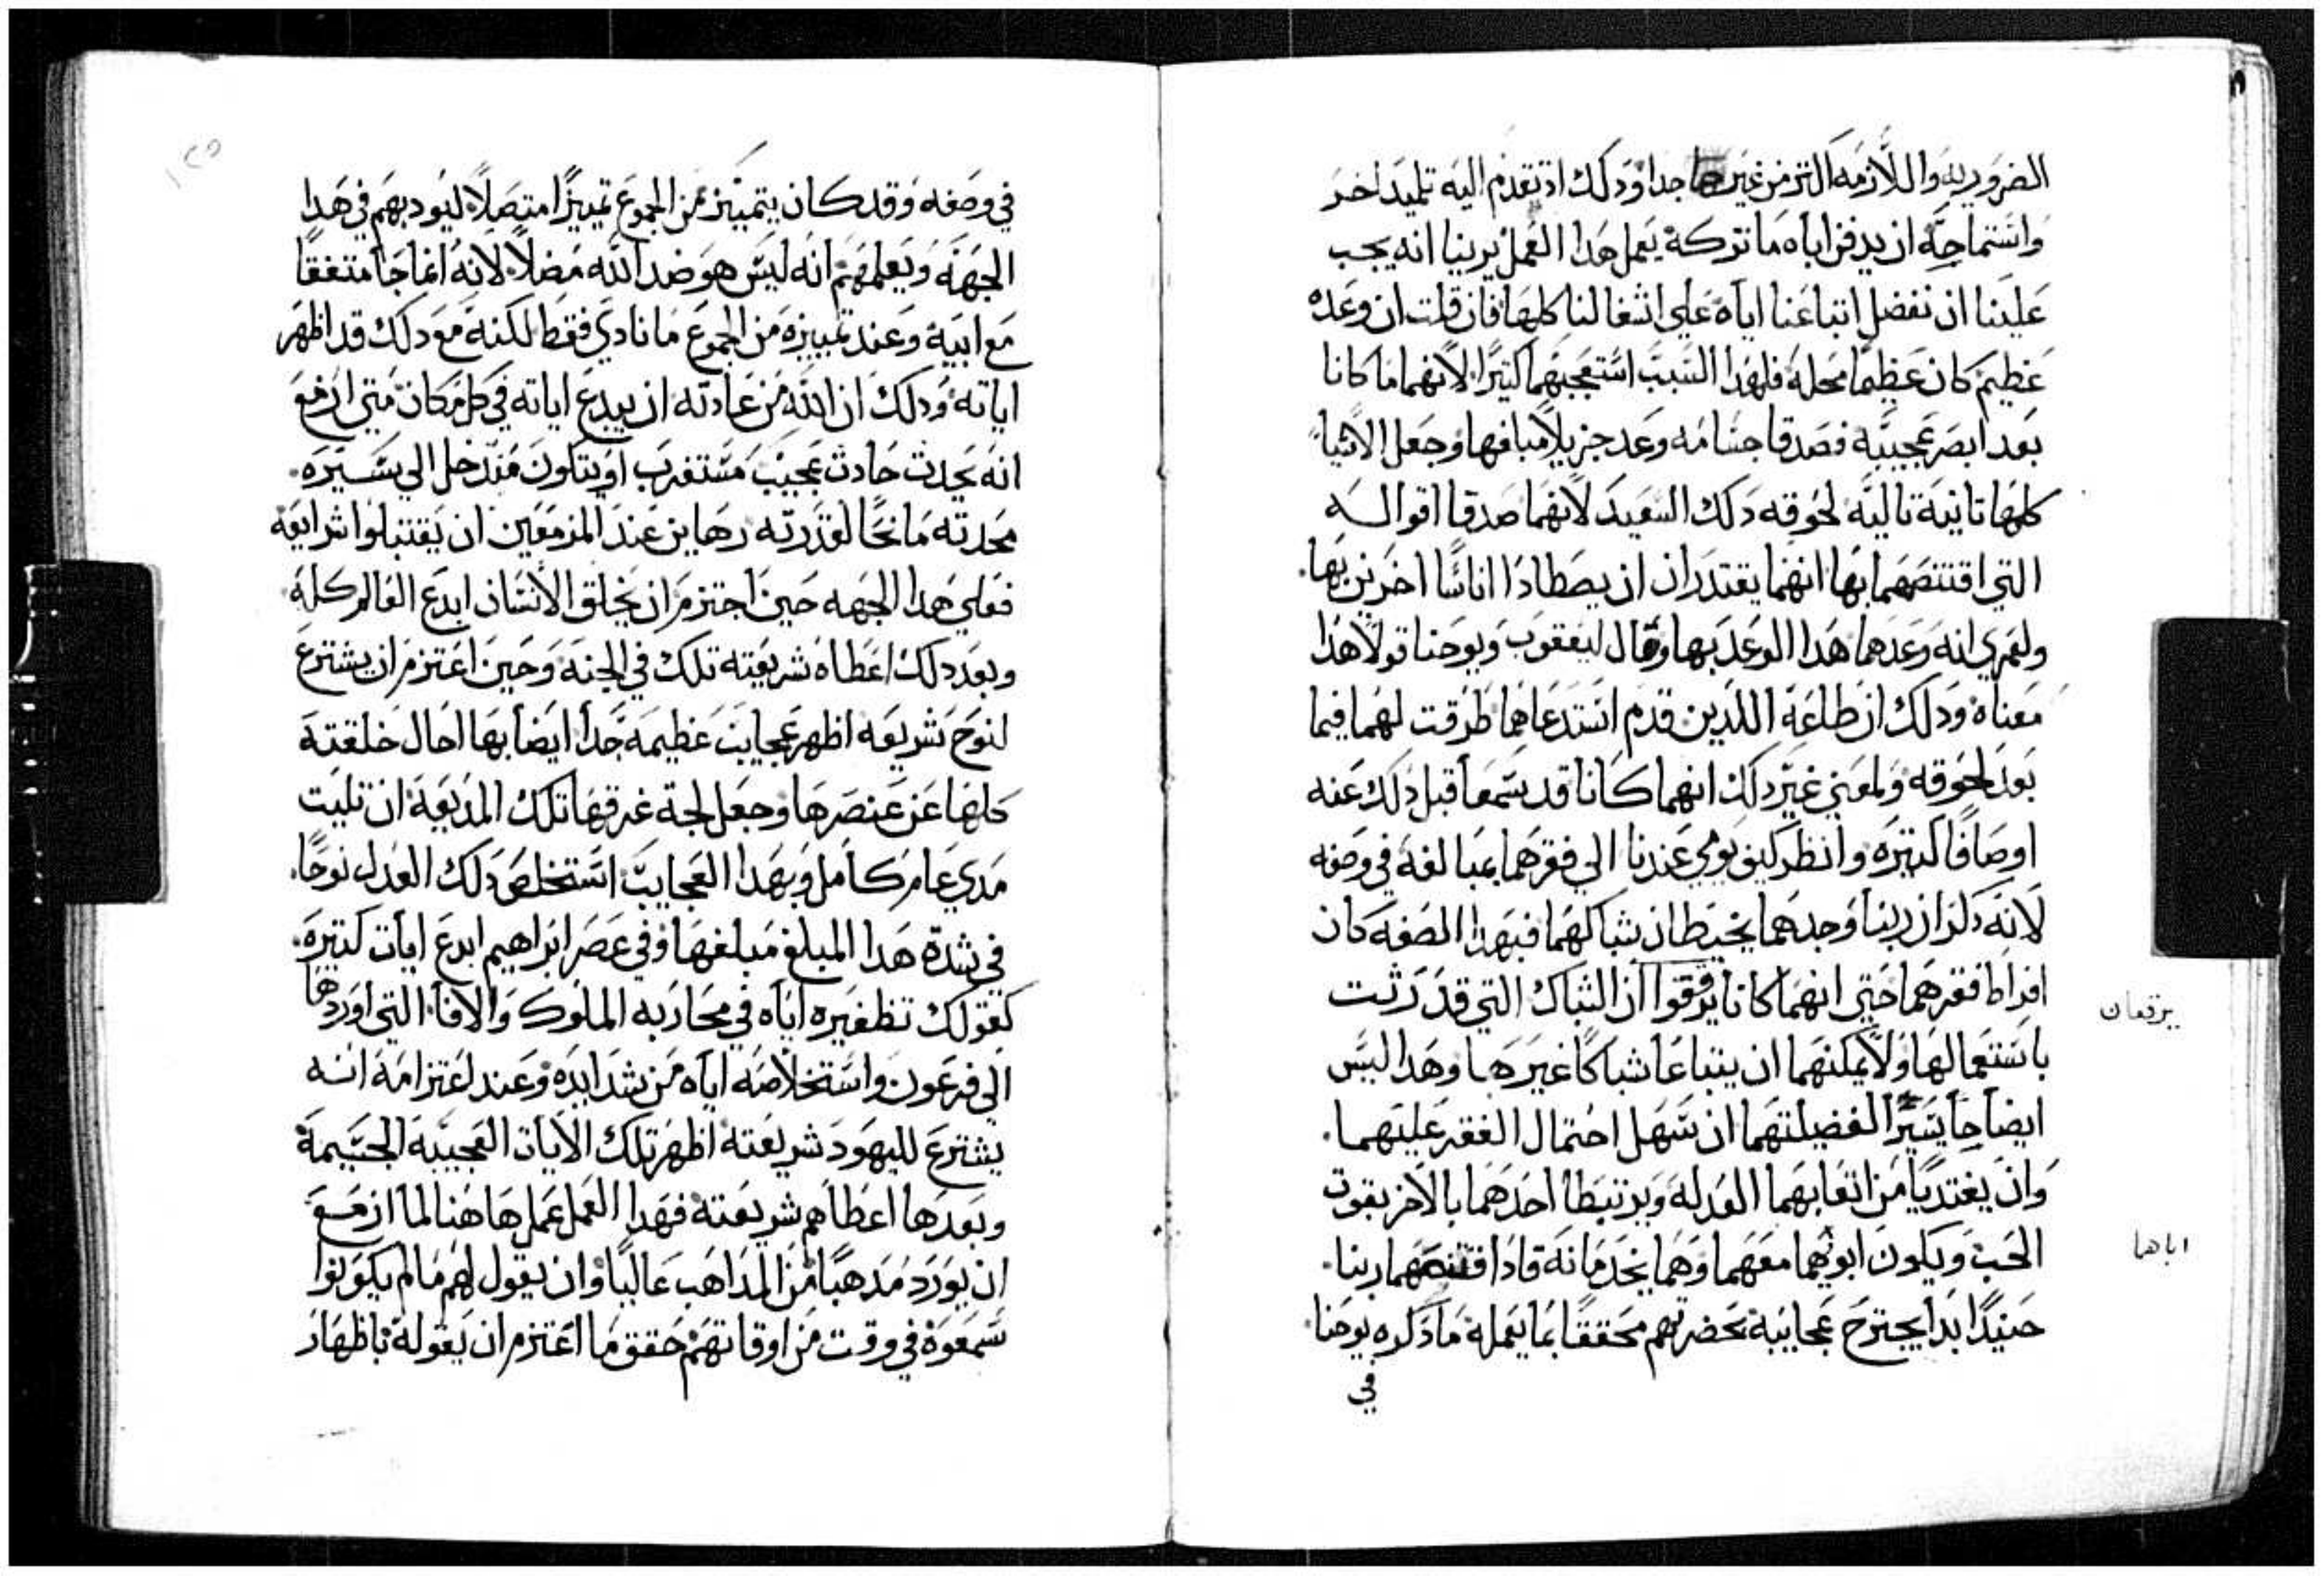 الضروريه واللازمه اكتر من غيرها جدا ودلك اد تقدم اليه تلميد اخر
واستماحه ان يدفن اباه ما تركه يعمل هدا العمل يرينا انه يجب
علينا ان نفضل اتباعنا اياه علي اشغالنا كلها فان قلت ان وعده
عظيم كان عظيما محله فلهدا السبب استعجبهما كتيرا لانهما ما كانا
بعد ابصر عجيبه فصدقا جسامه وعد جزيلا مبلغها وجعل الاشيا
كلها تانيه تاليه لحوقه دلك السعيد لانهما صدقا اقواله
التي اقتنصهما بها انهما يقتدران ان يصطادا اناسا اخرين بها.
ولعمري انه وعدهما هدا الوعد بها وقال ليعقوب ويوحنا قولا هدا
معناه ودلك ان طاعة اللدين قدم استدعاهما طرقت لهما فيما
بعد لحوقه ولمعني غير دلك انهما كانا قد سمعا قبل دلك عنه
اوصافا كتيره وانظر كيف يومي عندنا الي فقرهما بمبالغه في وصفه
لانه دكر ان ربنا وجدهما يخيطان شباكهما فبهدا الصفه كان
افراط فقرهما حتي انهما كانا يرقعوا ان الشباك التي قد رثت
باستعمالها ولا يمكنهما ان يبتاعا شباكا غيرها وهدا ليس
ايضا جا يسيرا لفضيلتهما ان سهل احتمال الفقر عليهما.
وان يغتديا من اتعابهما العدله ويرتبطا احدهما بالاخر بقوت
الحب ويكون ابوهما معهما وهما يخدمانه فادا اقتنصهما ربنا.
حنيدا ابدا يجترح عجايبه بحضرتهم محققا بما يعمله ما دكره يوحنا
في
يرقعان
اباهما
١٢٥
في وصفه وقد كان يتميز من الجموع تميزا متصلا ليودبهم في هدا
الجهه ويعلمهم انه ليس هو ضد الله مضلا لانه انما جا متفقا
مع ابيه وعند تمييزه من الجموع ما نادي فقط لكنه مع دلك قد اظهر
اياته ودلك ان الله من عادته ان يبدع اياته في كل مكان متي ازمع
انه يحدث حادث عجيب مستغرب او يتكون مندخل الي سيره.
محدته مانحا لقدرته رهاين عند المزمعين ان يقتبلوا شرايعه
فعلي هدا الجهه حين اجتزم ان يخلق الانسان ابدع العالم كله
وبعد دلك اعطاه شريعته تلك في الجنه وحين اعتزم ان يشترع
لنوح شريعه اظهر عجايب عظيمه جدا ايضا بها احال خلقته
كلها عن عنصرها وجعل لجة غرقها تلك المديعة ان تلبت
مدي عام كامل وبهدا العجايب استخلص دلك العدل نوحا.
في شدة هدا المبلغ مبلغها وفي عصر ابراهيم ابدع ايات كتيره.
كقولك تظفيره اياه في محاربه الملوك والافا التي اوردها
الي فرعون واستخلاصه اياه من شدايده وعند اعتزامه انه
يشترع لليهود شريعته اظهر تلك الايات العجيبه الجسيمة
وبعدها اعطاهم شريعته فهدا العمل عملها هنا لما ازمع
ان يورد مدهبا من المداهب عاليا وان يقول لهم ما لم يكونوا
سمعوه في وقت من اوقاتهم حقق ما اعتزم ان يقوله باظهار